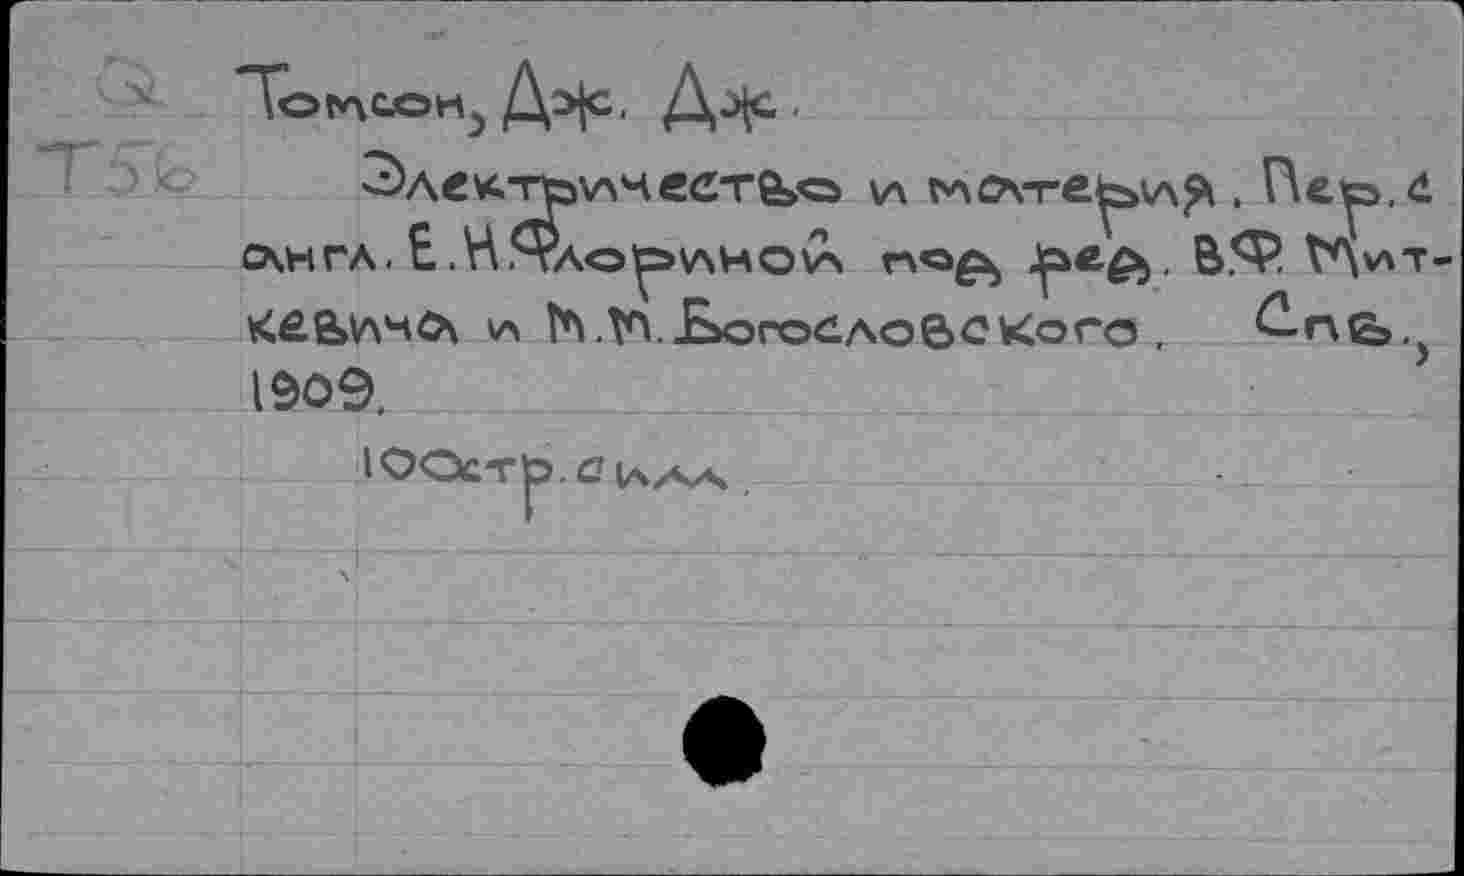 Q Томсон, Дж. Дж.
Т5б Электричество и материя. Пер. с
англ. Е.Н.Флориной под ред. В.Ф. Мит-
кевича и М.М. Богословского. Спб.,
1909.
100стр. силл.